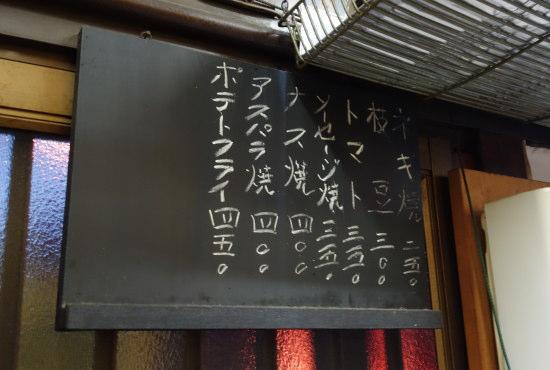 ネギ焼 二五〇
枝豆 三〇〇
トマト 三五〇
ソーセージ焼 三五〇
ナス焼 四〇〇
アスパラ焼 四〇〇
ポテトフライ 四五〇